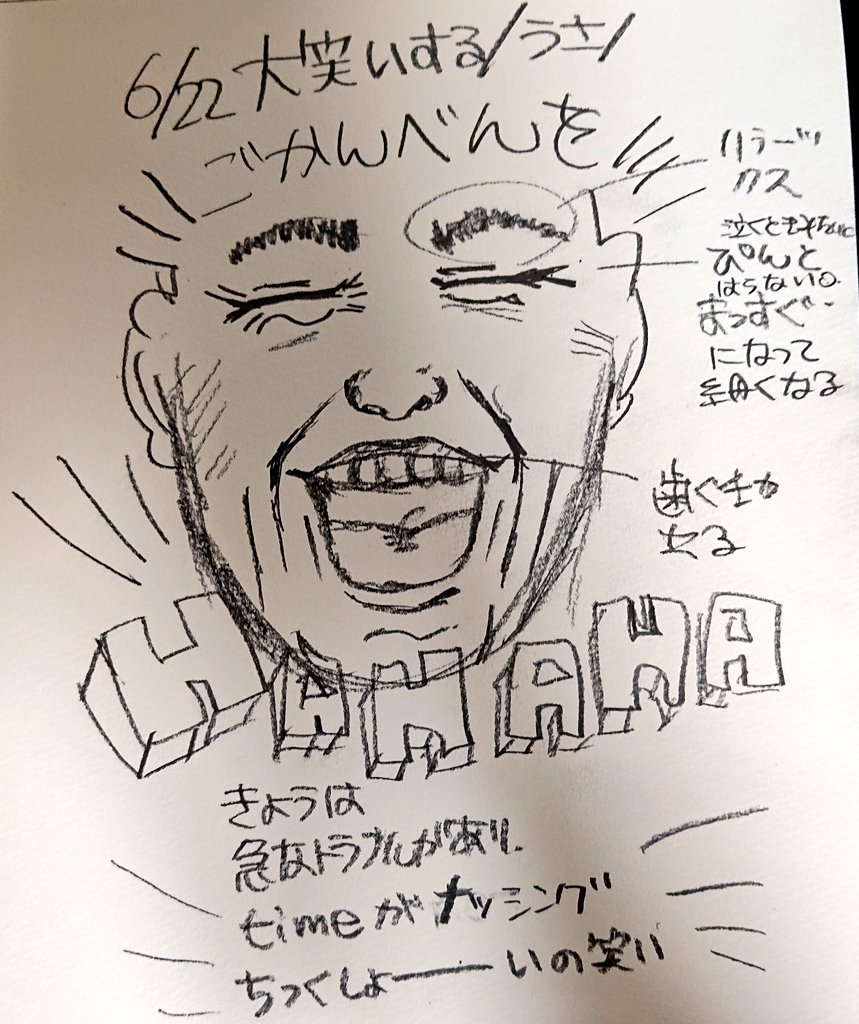 6/22 大笑いする/うさ/
ごかんべんを
リラーッ
クス
泣くときみたいに
ぴんと
はらない。
まっすぐ
になって
細くなる
歯ぐきが
HAHAHA
きょうは
急なトラブルがあり、
timeがナッシング
ちっくしょーいの笑い